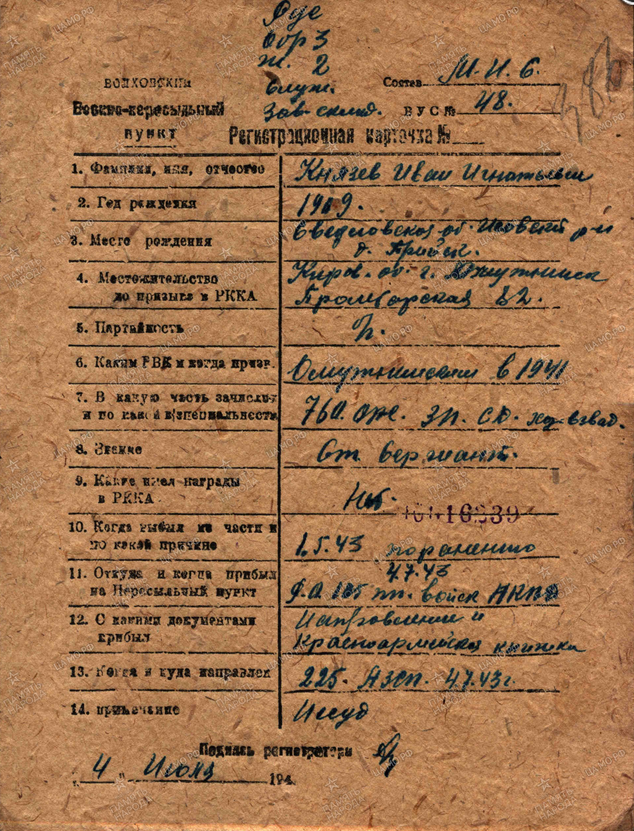 Обр 3
ж. 2
Служ.
Зав-склад.
ВОЛХОВСКИЙ
Военно-пересыльный
пункт
Состав М.Н.С.
ВУС № 48.
Регистрационная карточка №
1. Фамилия, имя, отчество Князев Иван Игнатьевич
2. Год рождения 1909.
3. Место рождения Свердловская об. р-н
д.
4. Местожительство
до призыва в РККА Киров. об. г. Омутнинск
Пролетарская 82.
5. Партийность
6. Каким РВК и когда призв. Омутнинским в 1941
7. В какую часть зачислен
и по какой специальности 760. СП. хозвзвод.
8. Звание Ст. сержант.
9. Какие имел награды
в РККА Нет.
16239
10. Когда выбыл из части и
по какой причине 1.5.43 по ранению
11. Откуда и когда прибыл
на Пересыльный пункт 4.7.43
войск
12. С какими документами
прибыл Направление и
Красноармейская книжка
13. Когда и куда направлен 225. АЗСП. 4.7.43г.
14. примечание
Подпись регистратора
„ 4 " Июля 194